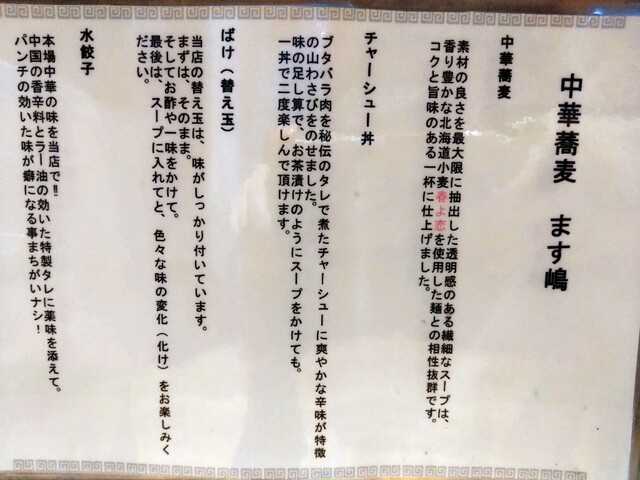 中華蕎麦 ます嶋
中華蕎麦
素材の良さを最大限に抽出した透明感のある繊細なスープは、
香り豊かな北海道小麦春よ恋を使用した麺との相性抜群です。
コクと旨味のある一杯に仕上げました。
チャーシュー丼
ブタバラ肉を秘伝のタレで煮たチャーシューに爽やかな辛味が特徴
の山わさびをのせました。
味の足し算で、お茶漬けのようにスープをかけても。
一丼で二度楽しんで頂けます。
ばけ（替え玉）
当店の替え玉は、味がしっかり付いています。
まずは、そのまま。
そしてお酢や一味をかけて。
最後は、スープに入れてと、色々な味の変化（化け）をお楽しみく
ださい。
水餃子
本場中華の味を当店で!!
中国の香辛料とラー油の効いた特製タレに薬味を添えて。
パンチの効いた味が癖になる事まちがいナシ！